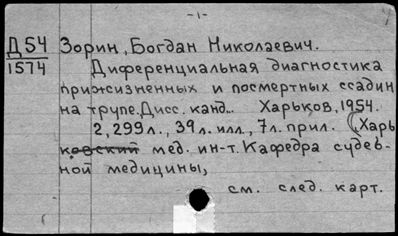 -1-
Д54 Зорин, Богдан Николаевич.
1574 Диференциальная диагностика
прижизненных и посмертных ссадин
на трупе. Дисс. канд.. Харьков, 1954.
2, 299л., 39л. илл., 7л. прил. (Харь
ковский мед. ин-т. Кафедра судеб-
ной медицины,
см. след. карт.